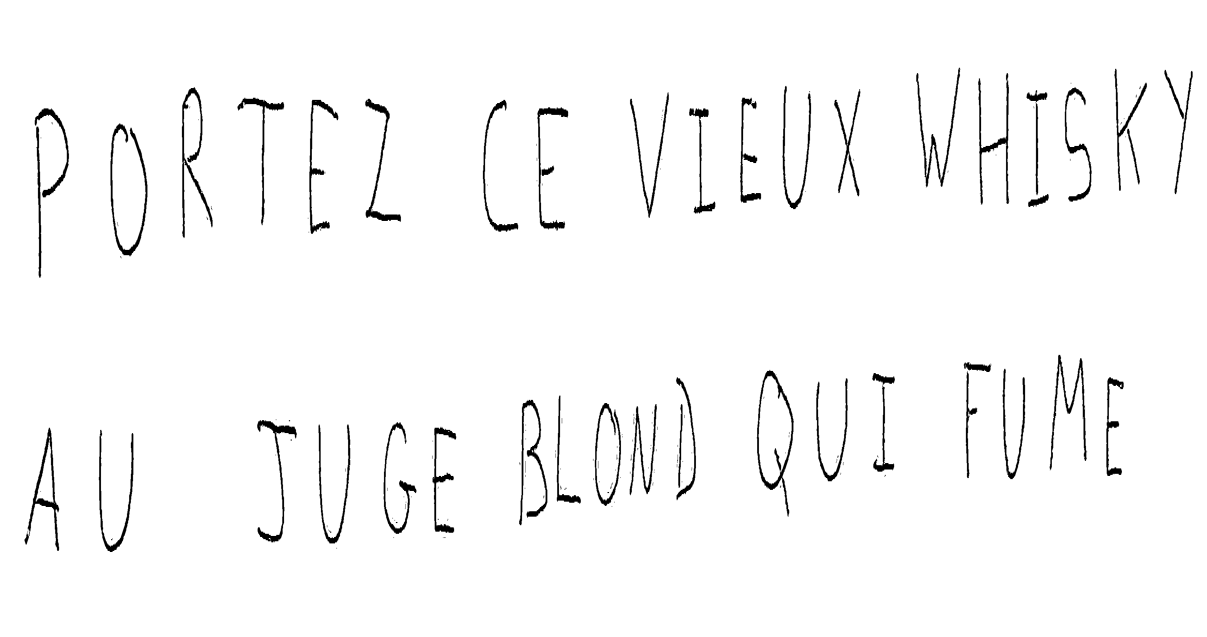 PORTEZ CE VIEUX WHISKY
AU JUGE BLOND QUI FUME